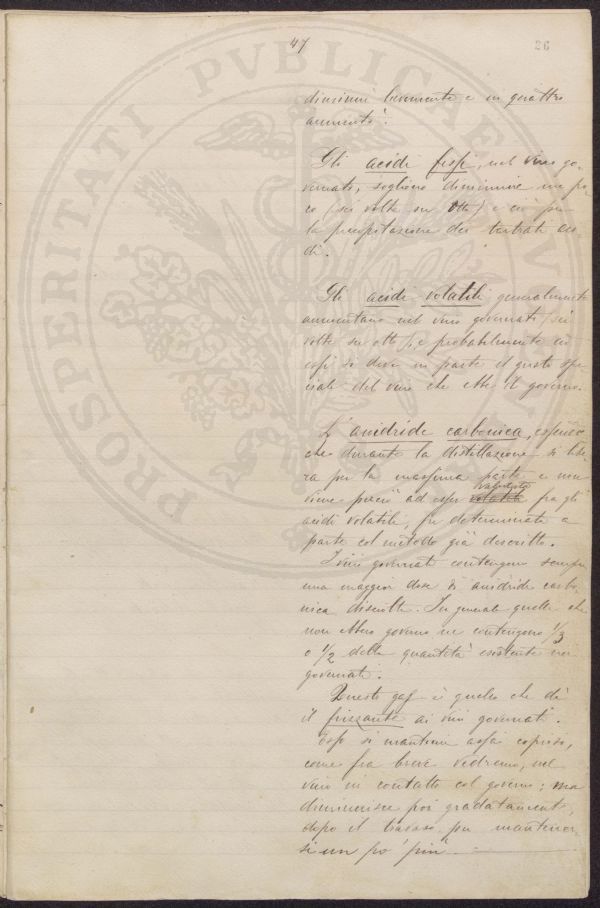 47
26
PROSPERITATI PVBLICAE
diminuì lievemente e in quattro
aumentò.
Gli acidi fissi, nel vino go-
vernato, sogliono diminuire un po-
co (sei volte su otto) e ciò per
la precipitazione dei tartrati aci-
di.
Gli acidi volatili generalmente
aumentano nel vino governato (sei
volte su otto), e probabilmente a
essi si deve in parte il gusto spe-
ciale del vino che ebbe il governo.
L'anidride carbonica, essendo
che durante la distillazione si libe-
ra per la massima parte e non
viene perciò ad esser valutata fra gli
acidi volatili, fu determinata a
parte col metodo già descritto.
I vini governati contengono sempre
una maggior dose di anidride carbo-
nica disciolta. In generale quelli che
non ebbero governo ne contengono 1/3
o 1/2 della quantità esistente nei
governati.
Questo gas è quello che dà
il frizzante ai vini governati.
Esso si mantiene assai copioso,
come fra breve vedremo, nel
vino in contatto col governo; ma
diminuisce poi gradatamente,
dopo il travaso, per mantener-
si un po' più